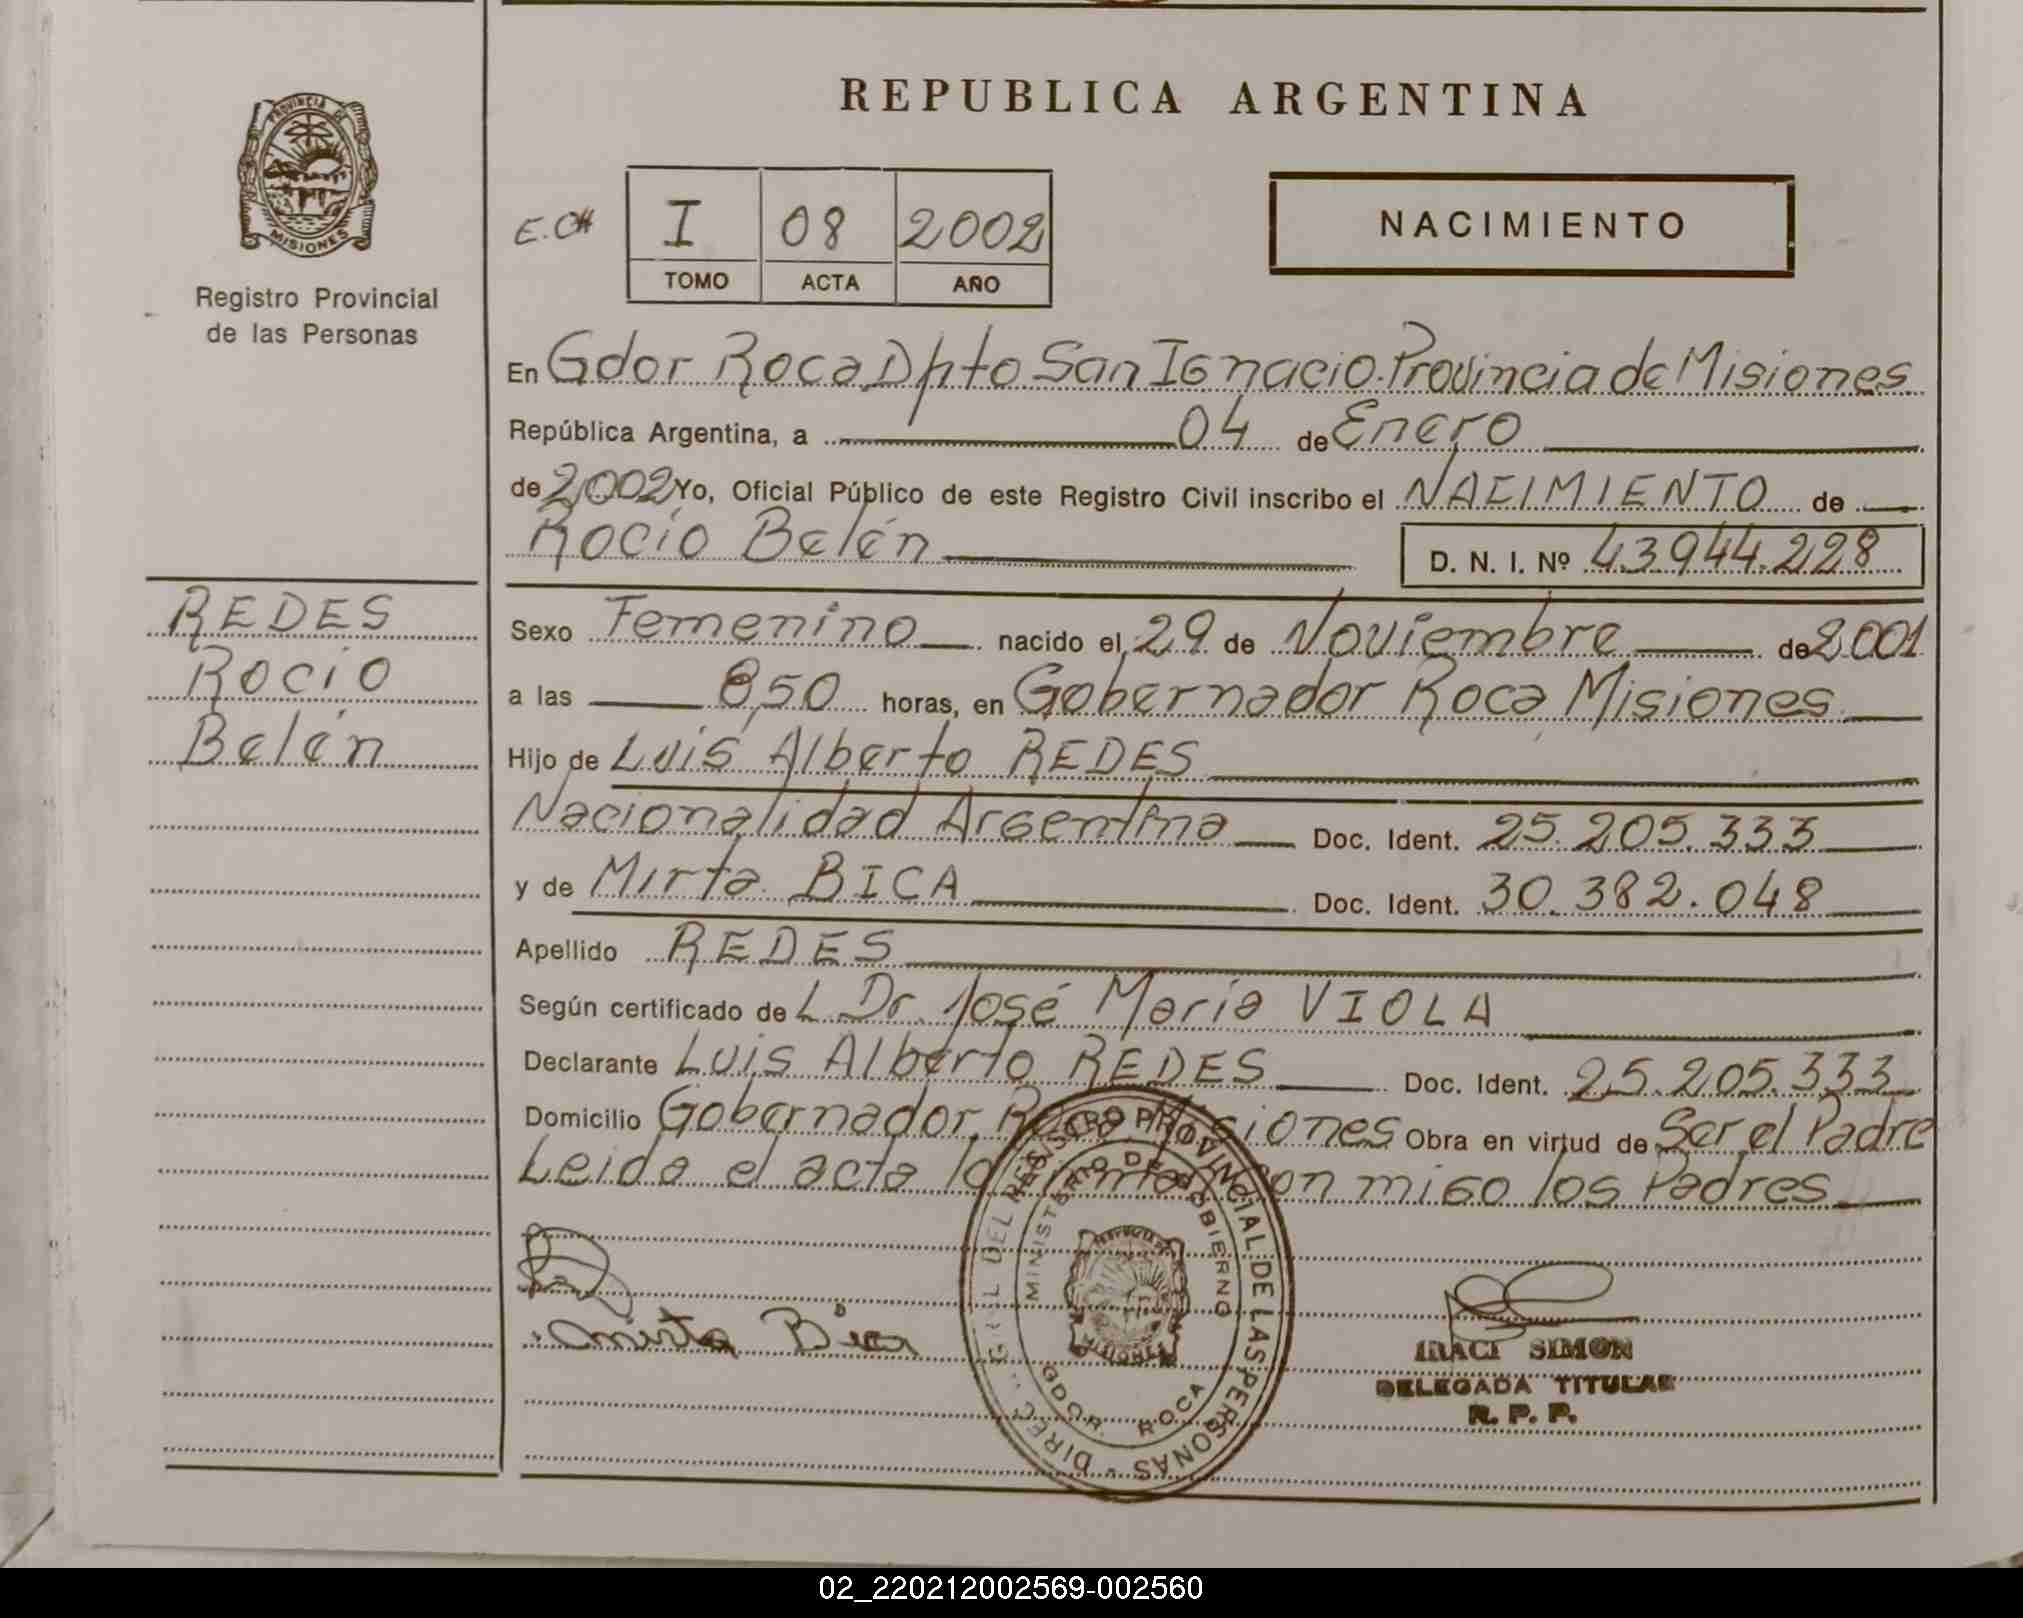 REPUBLICA ARGENTINA
PROVINCIA DE
MISIONES
Registro Provincial
de las Personas
E.CH
I 08 2002
TOMO ACTA AÑO
NACIMIENTO
En Gdor Roca Dpto San Ignacio. Provincia de Misiones
República Argentina, a 04 de Enero
de 2002 Yo, Oficial Público de este Registro Civil inscribo el NACIMIENTO de
Rocío Belén
D. N. I. Nº 43.944.228
REDES
Rocío
Belén
Sexo Femenino nacido el 29 de Noviembre de 2001
a las 8,50 horas, en Gobernador Roca Misiones
Hijo de Luis Alberto REDES
Nacionalidad Argentina Doc. Ident. 25.205.333
y de Mirta BICA Doc. Ident. 30.382.048
Apellido REDES
Según certificado de L Dr. José María VIOLA
Declarante Luis Alberto REDES Doc. Ident. 25.205.333
Domicilio Gobernador Roca Misiones Obra en virtud de Ser el Padre
Leida el acta la firman con migo los Padres
Mirta Bica
DIREC. GRAL DEL REGISTRO PROVINCIAL DE LAS PERSONAS
MINISTERIO DE GOBIERNO
MISIONES
GDOR. ROCA
IRACI SIMON
DELEGADA TITULAR
R. P. P.
02_220212002569-002560